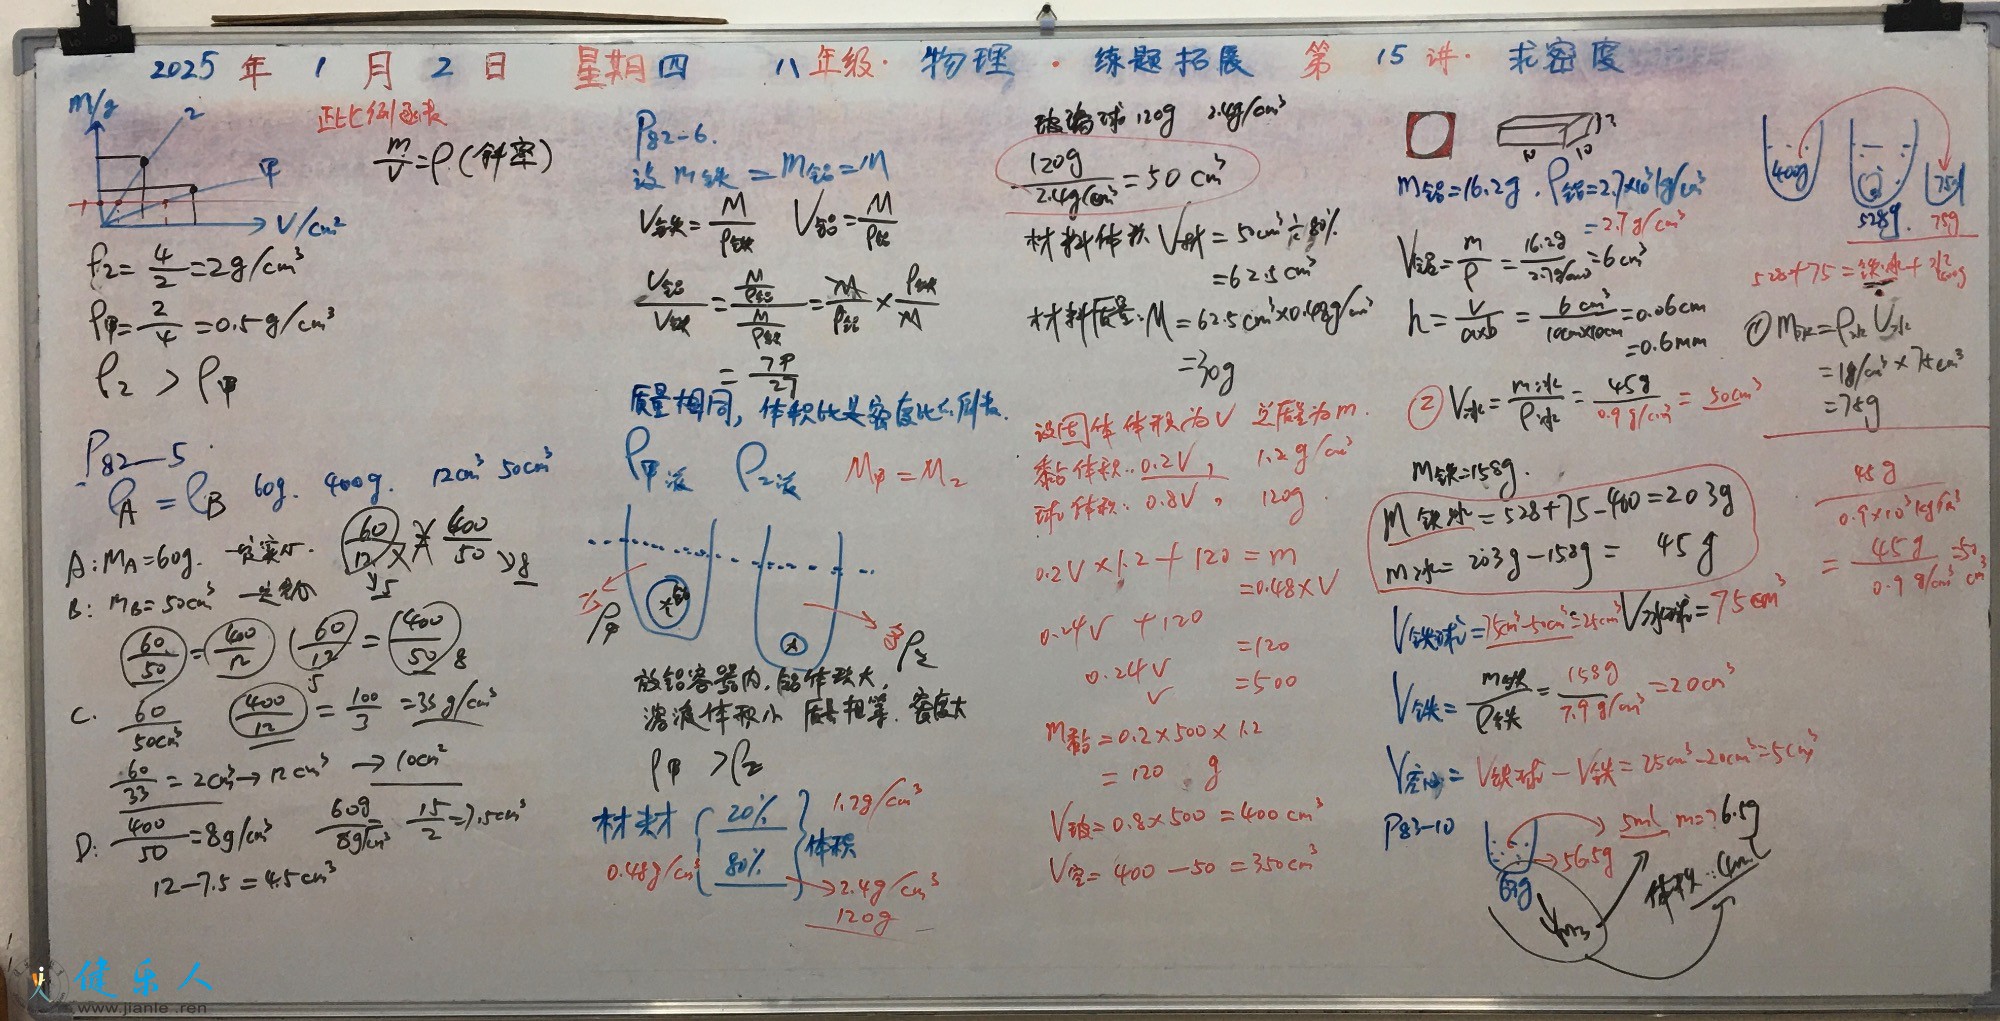 2025年1月2日 星期四 八年级·物理·练题拓展 第15讲·求密度
m/g
乙
甲
V/cm²
正比例函数
m/V=ρ(斜率)
ρ乙=4/2=2g/cm³
ρ甲=2/4=0.5g/cm³
ρ乙>ρ甲
P82-5
ρA=ρB 60g. 400g. 12cm³ 50cm³
A:MA=60g. 一定实心.
60/12 400/50
5 8
B: MB=50cm³
60/50=400/12 60/12=400/50
5 8
C. 60/50cm³ 400/12=100/3=33g/cm³
60/33=2cm³→12cm³→10cm²
D: 400/50=8g/cm³ 60g/8g/cm³ 15/2=7.5cm³
12-7.5=4.5cm³
P82-6.
设m铁=m铝=M
V铁=M/ρ铁 V铝=M/ρ铝
V铝/V铁=M/ρ铝/M/ρ铁=M/ρ铝×ρ铁/M
=79/27
质量相同,体积比是密度比反比.
ρ甲液 ρ乙液 M甲=M乙
ρ甲
ρ乙
放铝容器内,铝体积大,
液体体积小 质量相等.密度大
ρ甲>ρ乙
材料
20%
80%
体积
1.2g/cm³
0.48g/cm³
2.4g/cm³
120g
玻璃球 120g 2.4g/cm³
120g/2.4g/cm³=50cm³
材料体积V材=50cm³÷80%
=62.5cm³
材料质量:M=62.5cm³×0.48g/cm³
=30g
设固体体积为V 总质量为m.
黏体积:0.2V, 1.2g/cm³
球体积:0.8V, 120g
0.2V×1.2+120=m
=0.48×V
0.24V+120
0.24V=120
V=500
m黏=0.2×500×1.2
=120 g
V玻=0.8×500=400cm³
V空=400-50=350cm³
10 10
m铝=16.2g. ρ铝=2.7×10³kg/m³
=2.7g/cm³
V铝=m/ρ=16.2g/2.7g/cm³=6cm³
h=V/a×b=6cm³/10cm×10cm=0.06cm
=0.6mm
②V冰=m冰/ρ冰=45g/0.9g/cm³=50cm³
m铁=158g.
M铁冰=528+75-400=203g
m冰=203g-158g=45g
V铁球=75cm³-50cm³=25cm³
V冰球=75cm³
V铁=m铁/ρ铁=158g/7.9g/cm³=20cm³
V空心=V铁球-V铁=25cm³-20cm³=5cm³
P83-10
5ml m=6.5g
56.5g
体积:4ml
400g
528g.
75g
75g
528+75=铁冰+水400g
①m水=ρ水V水
=1g/cm³×75cm³
=75g
45g/0.9×10³kg/m³
=45g/0.9g/cm³=50cm³
健乐人
www.jianle.ren